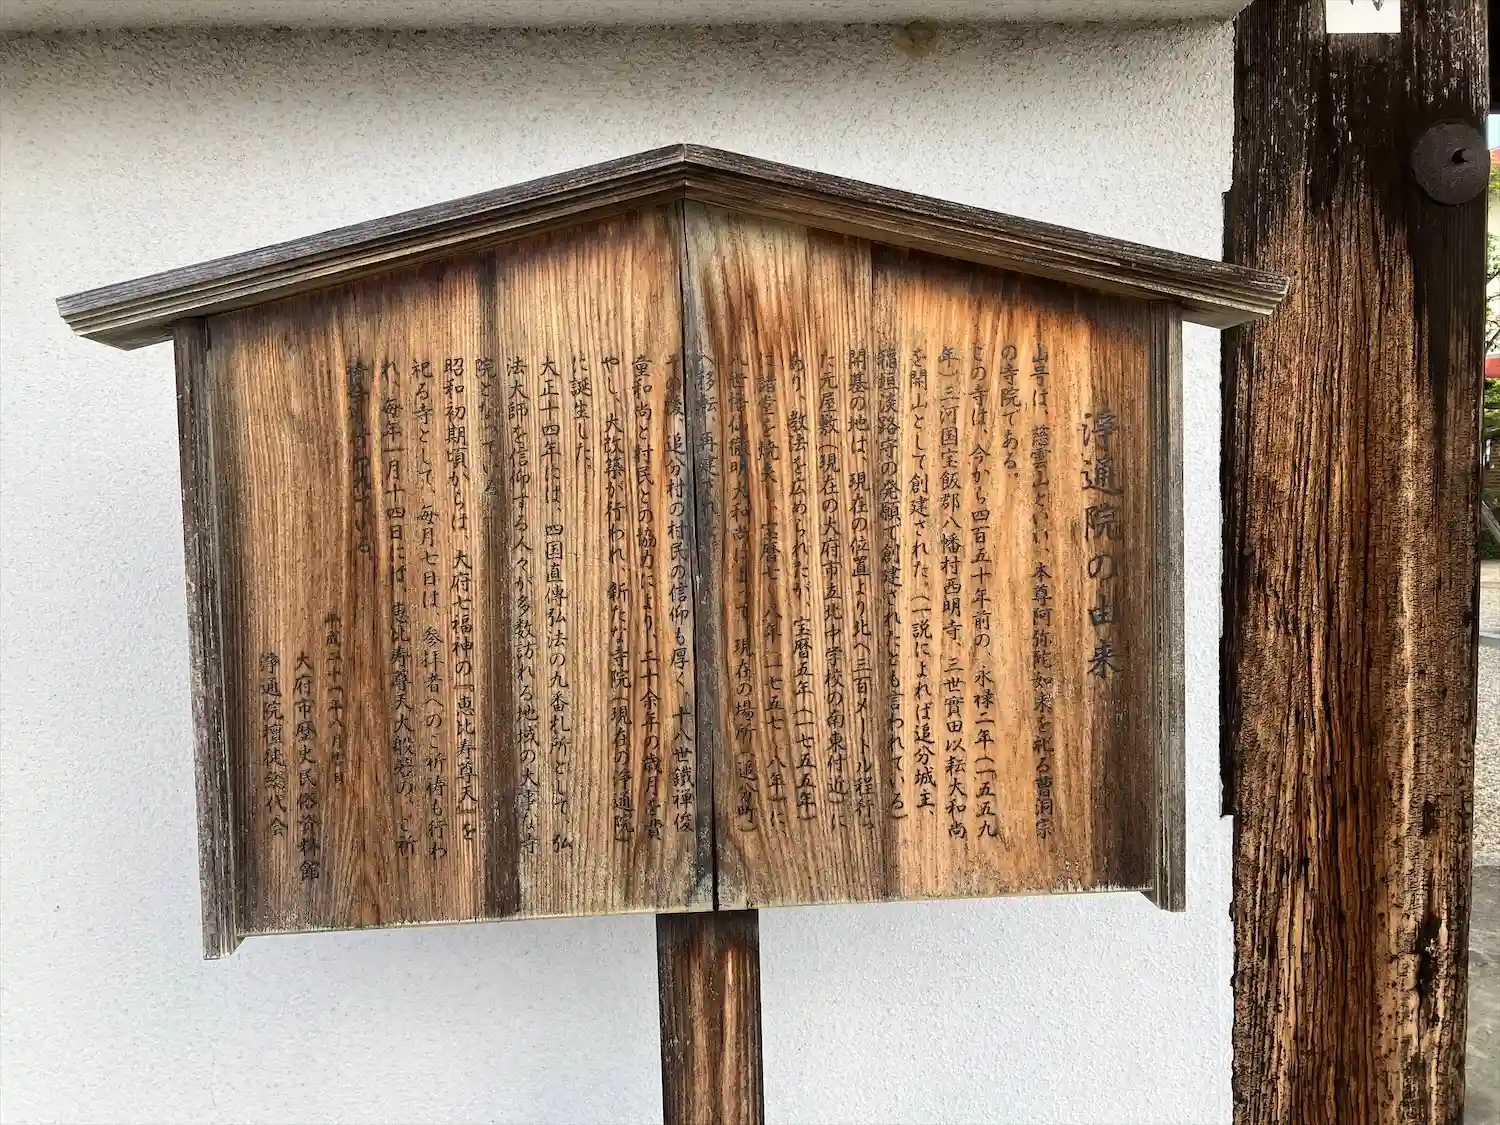 浄通院の由来
山号は、慈雲山といい、本尊阿弥陀如来を祀る曹洞宗
の寺院である。
この寺は、今から四百五十年前の、永禄二年(一五五九
年)三河国宝飯郡八幡村西明寺、三世實田以耘大和尚
を開山として創建された。(一説によれば追分城主、
稲垣淡路守の発願で創建されたとも言われている)
開基の地は、現在の位置より北へ三百メートル程行っ
た元屋敷(現在の大府市立北中学校の南東付近)に
あり、教法を広められたが、宝暦五年(一七五五年)
に諸堂を焼失し、宝暦七、八年(一七五七、八年)に、
八世悟仙徹明大和尚によって、現在の場所(追分町)
へ移転、再建された。
その後、追分村の村民の信仰も厚く、十八世鐵禅俊
童和尚と村民との協力により、二十余年の歳月を費
やし、大改築が行われ、新たな寺院(現在の浄通院)
に誕生した。
大正十四年には、四国直傳弘法の九番札所として、仏
法大師を信仰する人々が多数訪れる地域の大事な寺
院となっている。
昭和初期頃からは、大府七福神の「恵比寿尊天」を
祀る寺として、毎月七日は、参拝者へのご祈祷も行わ
れ、毎年一月十四日には、恵比寿尊天大般若の、ご祈
祷
平成二十一年八月
大府市歴史民俗資料館
浄通院檀徒総代会